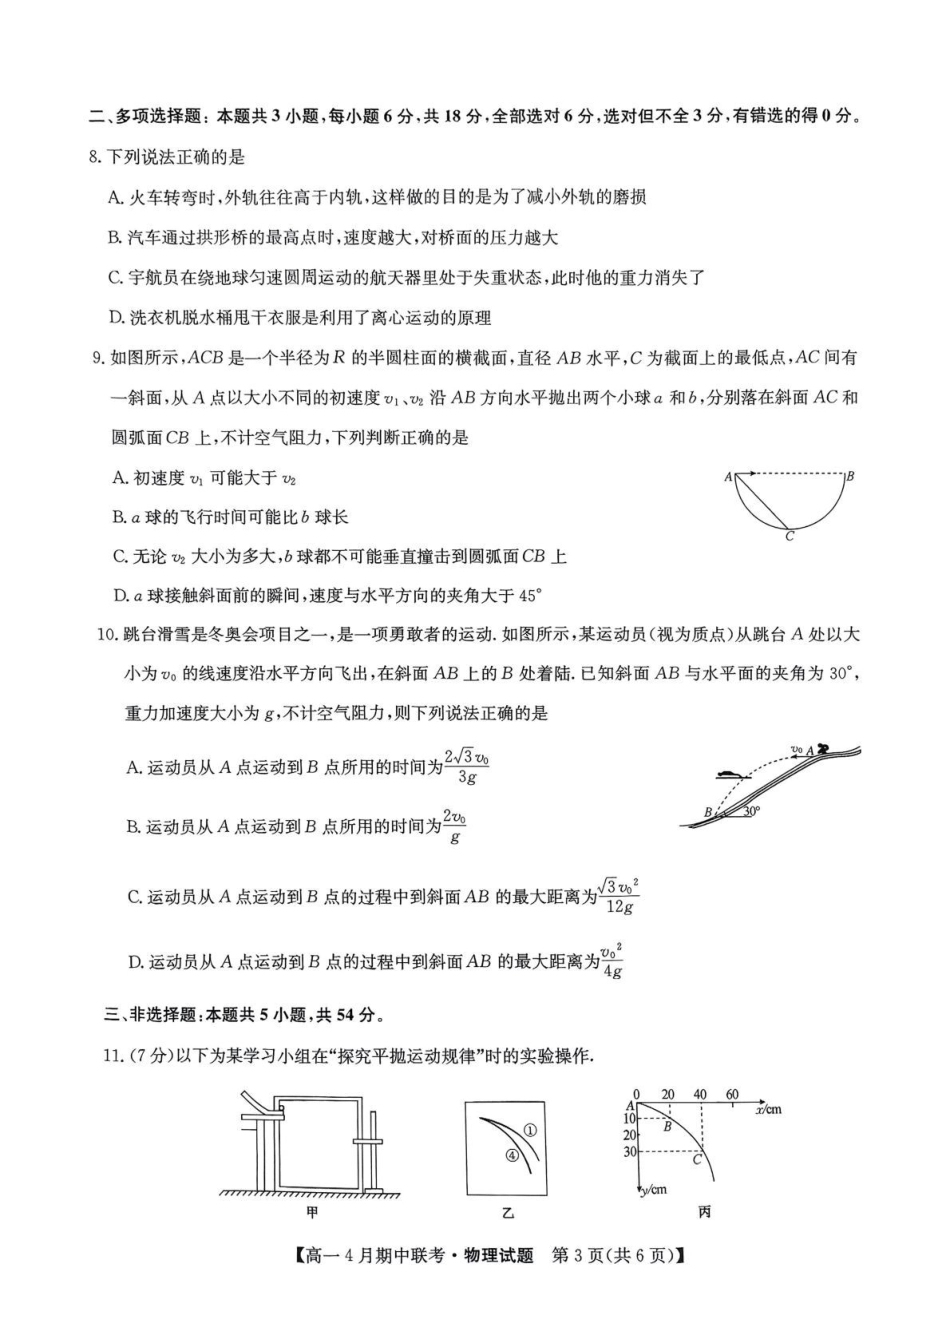 二、多项选择题：本题共3小题，每小题6分，共18分，全部选对6分，选对但不全3分，有错选的得0分。
8. 下列说法正确的是
A. 火车转弯时，外轨往往高于内轨，这样做的目的是为了减小外轨的磨损
B. 汽车通过拱形桥的最高点时，速度越大，对桥面的压力越大
C. 宇航员在绕地球匀速圆周运动的航天器里处于失重状态，此时他的重力消失了
D. 洗衣机脱水桶甩干衣服是利用了离心运动的原理
9. 如图所示，ACB是一个半径为R的半圆柱面的横截面，直径AB水平，C为截面上的最低点，AC间有
一斜面，从A点以大小不同的初速度v₁、v₂沿AB方向水平抛出两个小球a和b，分别落在斜面AC和
圆弧面CB上，不计空气阻力，下列判断正确的是
A. 初速度v₁可能大于v₂
B. a球的飞行时间可能比b球长
C. 无论v₂大小为多大，b球都不可能垂直撞击到圆弧面CB上
D. a球接触斜面前的瞬间，速度与水平方向的夹角大于45°
A B
C
10. 跳台滑雪是冬奥会项目之一，是一项勇敢者的运动. 如图所示，某运动员(视为质点)从跳台A处以大
小为v₀的线速度沿水平方向飞出，在斜面AB上的B处着陆. 已知斜面AB与水平面的夹角为30°，
重力加速度大小为g，不计空气阻力，则下列说法正确的是
A. 运动员从A点运动到B点所用的时间为2√3v₀/3g
B. 运动员从A点运动到B点所用的时间为2v₀/g
C. 运动员从A点运动到B点的过程中到斜面AB的最大距离为√3v₀²/12g
D. 运动员从A点运动到B点的过程中到斜面AB的最大距离为v₀²/4g
v₀ A
B 30°
三、非选择题：本题共5小题，共54分。
11. (7分)以下为某学习小组在“探究平抛运动规律”时的实验操作.
甲
①
④
乙
0 20 40 60
A x/cm
10 B
20
30 C
y/cm
丙
【高一4月期中联考·物理试题 第3页(共6页)】